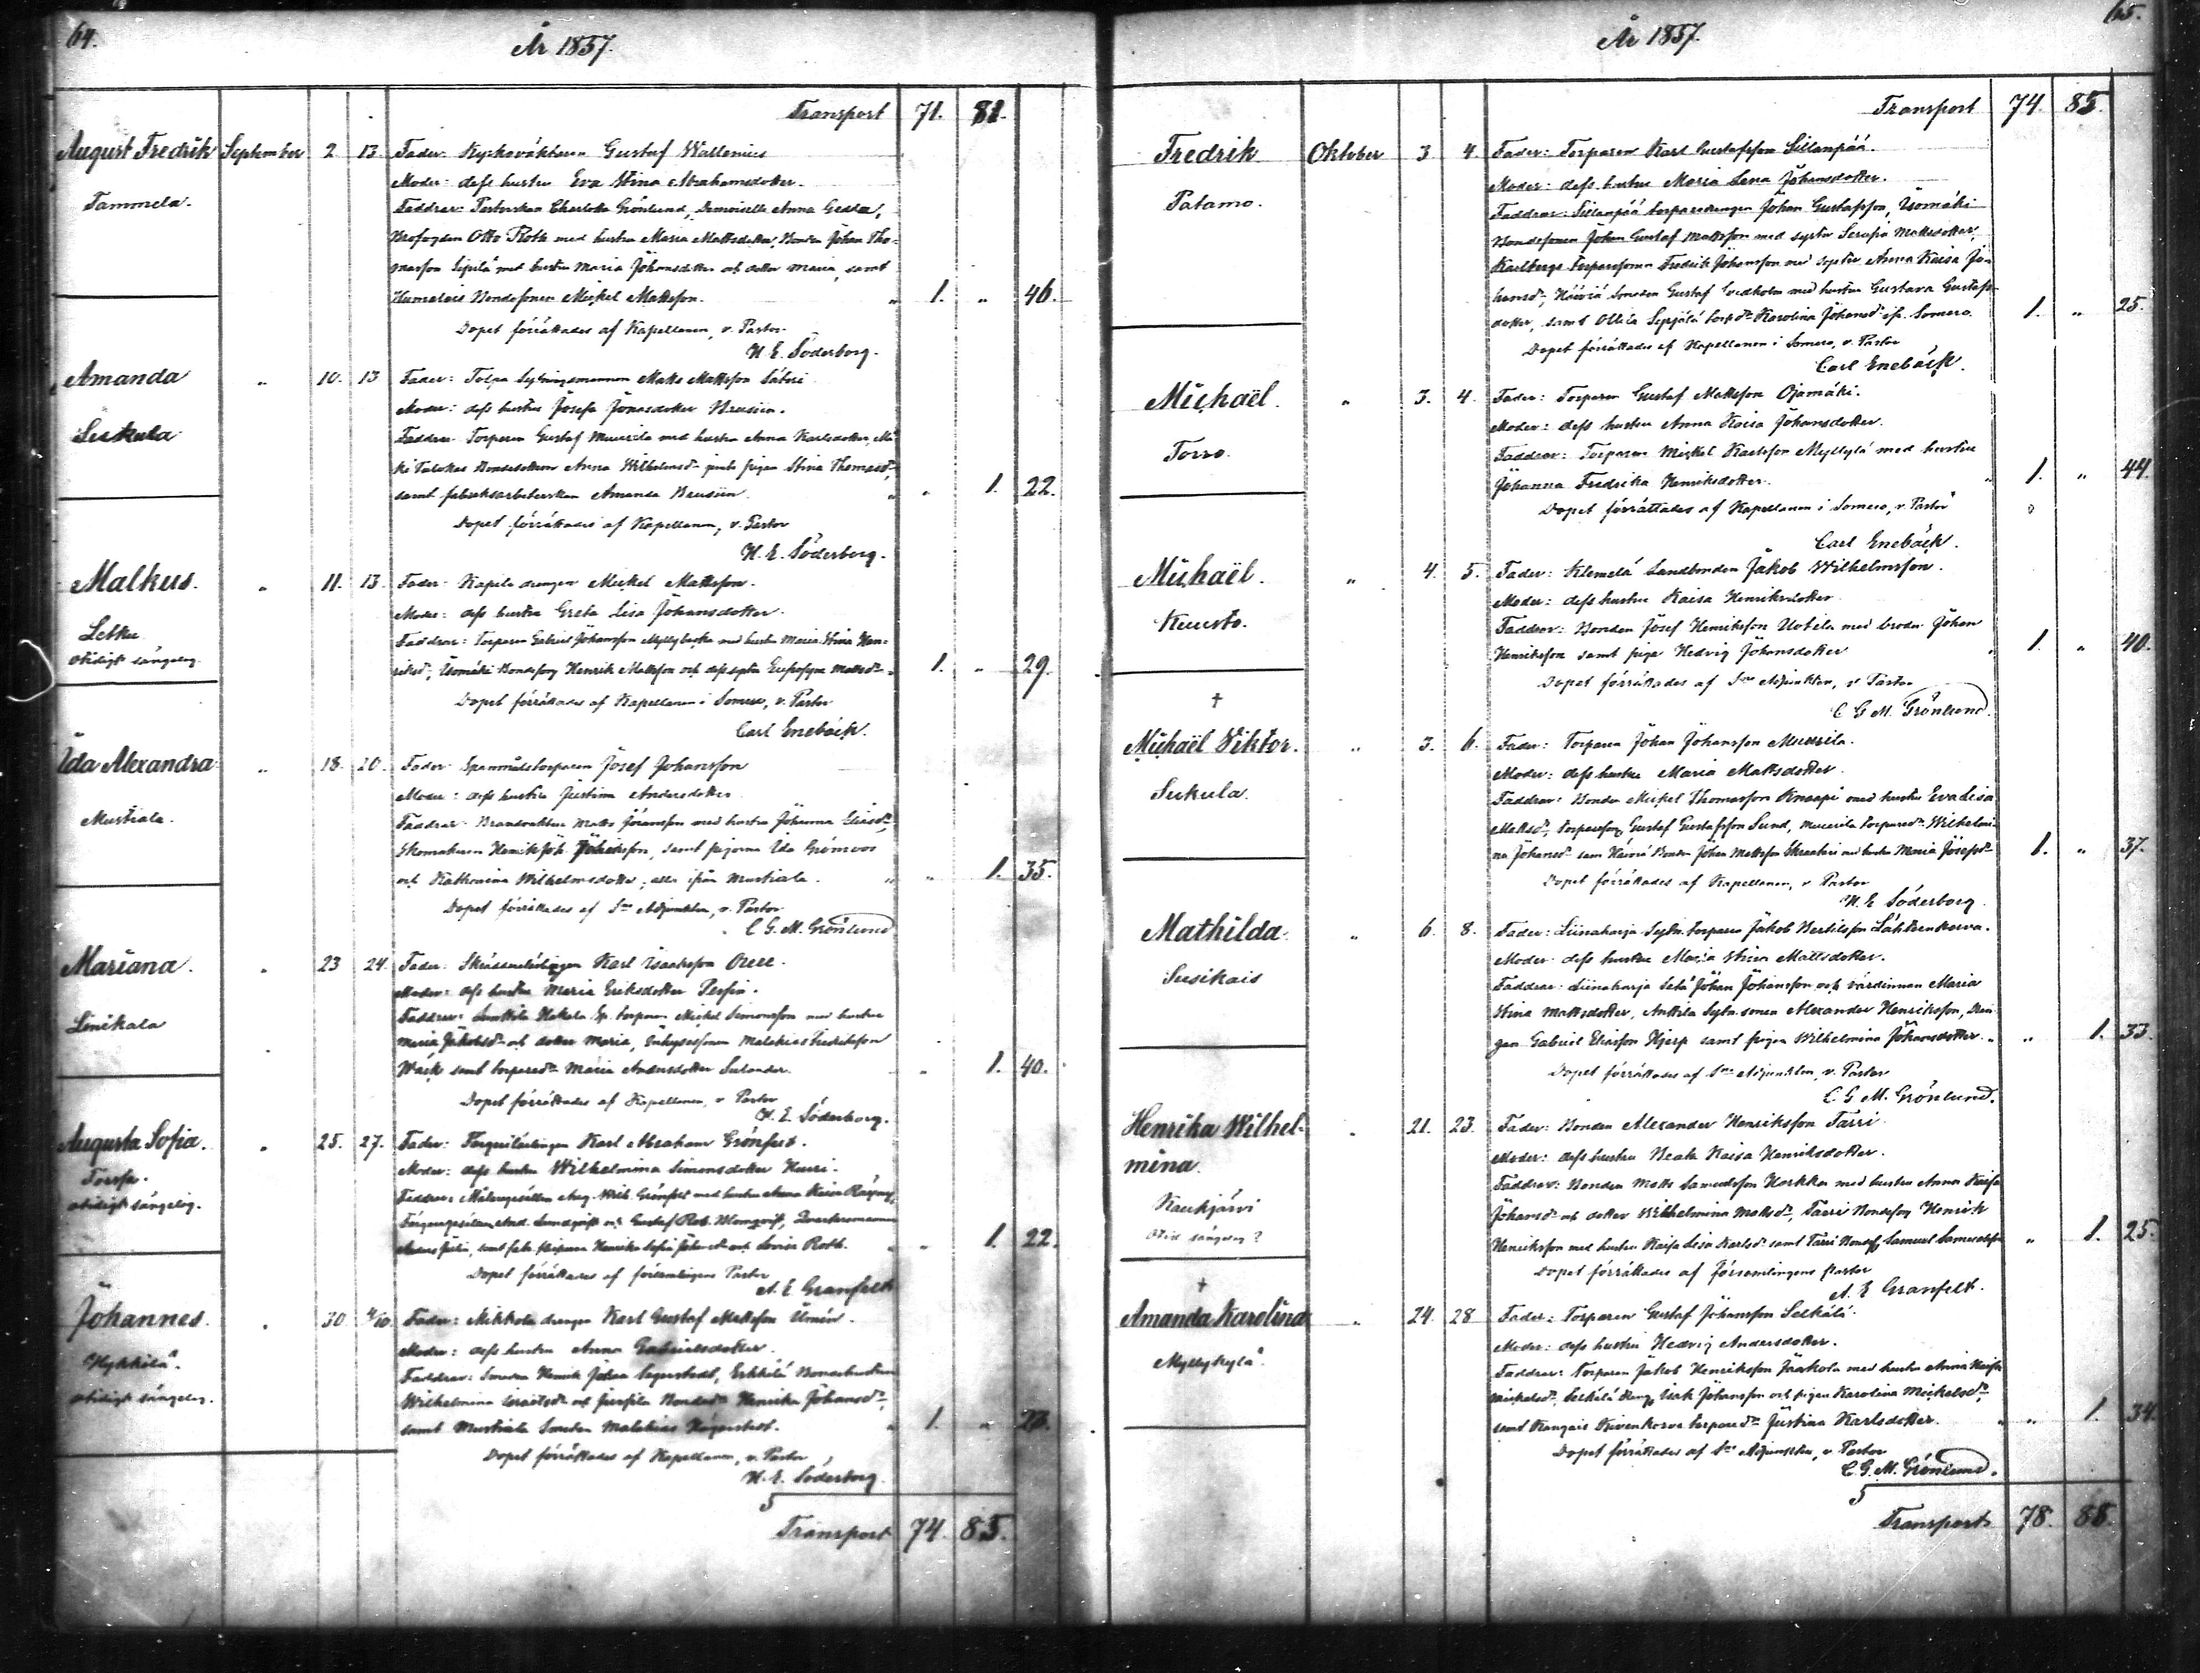 64.
År 1857.
Transport 71. 81.
August Fredrik September 2 13. Fader: Kyrkovaktaren Gustaf Wallenius
Moder: dess hustru Eva Stina Abrahamsdotter.
Tammela.
Faddrar: Pastorskan Charlotta Grönlund, Demoiselle Anna Gedda,
Brofogden Otto Roth med hustru Maria Mattsdotter, Bonden Johan Tho-
masson Sipilä med hustru Maria Johansdotter och dotter Maria, samt
Humalais Bondesonen Mickel Mattsson. " 1. " 46.
Dopet förrättades af Kapellanen, v. Pastor
H. E. Söderborg.
Amanda " 10. 13 Fader: Tolpa Sytningsmannen Matts Mattsson Säteri
Moder: dess hustru Josefa Jonasdotter Brusiin.
Susikula
Faddrar: Torparen Gustaf Muurila med hustru Anna Karlsdotter, Mä-
ki Talokas Bondedottern Anna Wilhelmsdr samt pigan Stina Thomasdr,
samt fabriksarbeterskan Amanda Brusiin. " " 1. 22.
Dopet förrättades af Kapellanen, v. Pastor
H. E. Söderborg.
Malkus. " 11. 13. Fader: Kapila drengen Mickel Mattsson.
Moder: dess hustru Greta Lisa Johansdotter.
Letku
Faddrar: Torparen Gabriel Johansson Myllybacka med hustru Maria Stina Hen-
otidigt sängelag.
riksdr, Isomäki Bondeson Henrik Mattsson och dess syster Eufrosyne Mattsdr. 1. " 29.
Dopet förrättades af Kapellanen i Somero, v. Pastor
Carl Enebäck.
Ida Alexandra " 18. 20. Fader: Spannmålstorparen Josef Johansson
Moder: dess hustru Justina Andersdotter
Mustiala.
Faddrar: Brandvakten Matts Göransson med hustru Johanna Eliasdr,
Skomakaren Henrik Joh. Johansson, samt pigorna Ida Grönroos
och Katharina Wilhelmsdotter, alla ifrån Mustiala. " " 1. 35.
Dopet förrättades af Sne Adjunkten, v. Pastor
C G. M. Grönlund
Mariana. " 23 24. Fader: Skräddarelärlingen Karl Isaaksson
Moder: dess hustru Maria Eriksdotter
Liinikala
Faddrar: Hakala Sp. torparen Mickel Simonsson med hustru
Maria Jakobsdr och dotter Maria, Inhysessonen Malakias Fredriksson
Wäck samt torparedr Maria Andersdotter Sulander. " 1. 40.
Dopet förrättades af Kapellanen, v Pastor
H. E. Söderborg.
Augusta Sofia. " 25. 27. Fader: Färgarlärlingen Karl Abraham Grönfors.
Moder: dess hustru Wilhelmina Simonsdotter
Forssa.
otidigt sängelag.
Gustaf Rob. Blomqvist,
samt Henrika Sofia och Lovisa Roth. " " 1. 22.
Dopet förrättades af församlingens Pastor
A. E. Granfelt
Johannes. " 30 4/10 Fader: Mikkola drengen Karl Gustaf Mattsson
Moder: dess hustru Anna Gabrielsdotter.
Hykkilä.
otidigt sängelag.
Wilhelmina Henrika Johansdr,
samt Mustiala Smeden Malakias Hägerstedt. " 1. " 23.
Dopet förrättades af Kapellanen, v. Pastor
H. E. Söderborg
Transport 74. 85.
65.
År 1857.
Transport 74. 85.
Fredrik Oktober 3 4. Fader: Torparen Karl Gustafsson Sillanpää.
Moder: dess hustru Maria Lena Johansdotter.
Patamo.
Faddrar: Sillanpää torparedrengen Johan Gustafsson, Isomäki
Bondesonen Johan Gustaf Mattsson med syster Serafia Mattsdotter,
Karlberga Torparesonen Fredrik Johansson med syster Anna Kaisa Jo-
hansdr, Häiviä Smeden Gustaf Svedholm med hustru Gustava Gustafs-
dotter, samt Ollila Seppälä torpdr Karolina Johansdr ifr. Somero. 1. " 25.
Dopet förrättades af Kapellanen i Somero, v. Pastor
Carl Enebäck.
Michaël. " 3. 4. Fader: Torparen Gustaf Mattsson Ojamäki.
Moder: dess hustru Anna Kaisa Johansdotter.
Torro.
Faddrar: Torparen Mickel Karlsson Myllylä med hustru
Johanna Fredrika Henriksdotter. " 1. " 44.
Dopet förrättades af Kapellanen i Somero, v. Pastor
Carl Enebäck.
Michaël. " 4. 5. Fader: Klemelä Landbonden Jakob Wilhelmsson.
Moder: dess hustru Kaisa Henriksdotter
Kuusto.
Faddrar: Bonden Josef Henriksson Uotila med broder Johan
Henriksson samt piga Hedvig Johansdotter " 1. " 40.
Dopet förrättades af Sne Adjunkten, v Pastor
C G M. Grönlund.
†
Michaël Viktor. " 3. 6. Fader: Torparen Johan Johansson Muurila.
Moder: dess hustru Maria Mattsdotter.
Sukula.
Faddrar: Bonden Mickel Thomasson Knaapi med hustru Eva Lisa
Mattsdr, torpareson Gustaf Gustafsson Sund, Muurila torparedr Wilhelmi-
na Johansdr sam Häiviä Bonden Johan Mattsson Skraatari med hustru Maria Josefsdr 1. " 37.
Dopet förrättades af Kapellanen, v Pastor
H. E Söderborg
Mathilda " 6. 8. Fader: Liinaharja Sytn. torparen Jakob Bertilsson Lähteenkorva.
Moder: dess hustru Maria Stina Mattsdotter.
Susikais
Faddrar: Liinaharja Johan Johansson och värdinnan Maria
Stina Mattsdotter, Anttila Sytn. sonen Alexander Henriksson, Dren-
gen Gabriel Eliasson Hjerp samt pigan Wilhelmina Johansdotter. " " 1. 33.
Dopet förrättades af Sne Adjunkten, v. Pastor
C G M. Grönlund.
Henrika Wilhel- " 21. 23. Fader: Bonden Alexander Henriksson Tarri
mina.
Moder: dess hustru Beata Kaisa Henriksdotter.
Kaukjärvi
Faddrar: Bonden Matts Samuelsson Horkka med hustru Anna Kaisa
Johansdr och dotter Wilhelmina Mattsdr, Tarri Bondeson Henrik
Otid. sängelag?
Henriksson med hustru Kaisa Lisa Karlsdr samt Tarri Bondes. Samuel Samuelsson " 1. 25.
Dopet förrättades af församlingens Pastor
A. E Granfelt.
†
Amanda Karolina " 24. 28 Fader: Torparen Gustaf Johansson Selkälä.
Moder: dess hustru Hedvig Andersdotter.
Myllykylä.
Faddrar: Torparen Jakob Henriksson Jaakola med hustru Anna Kaisa
Mickelsdr, Selkälä dreng Erik Johansson och pigan Karolina Mickelsdr
samt Kangais Kivenkorva torparedr Justina Karlsdotter. " " 1. 34.
Dopet förrättades af Sne Adjunkten, v Pastor
C. G. M. Grönlund.
Transport 78. 88.